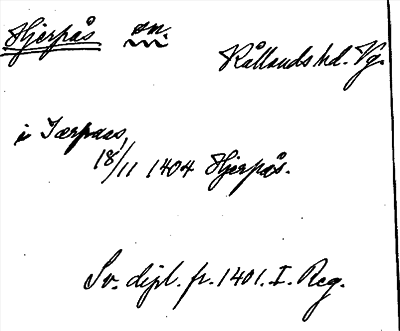 Hjerpås sn.
Kållands hd. Vg.
i Iærpaas,
18/11 1404 Hjerpås.
Sv. dipl. fr. 1401. I. Reg.